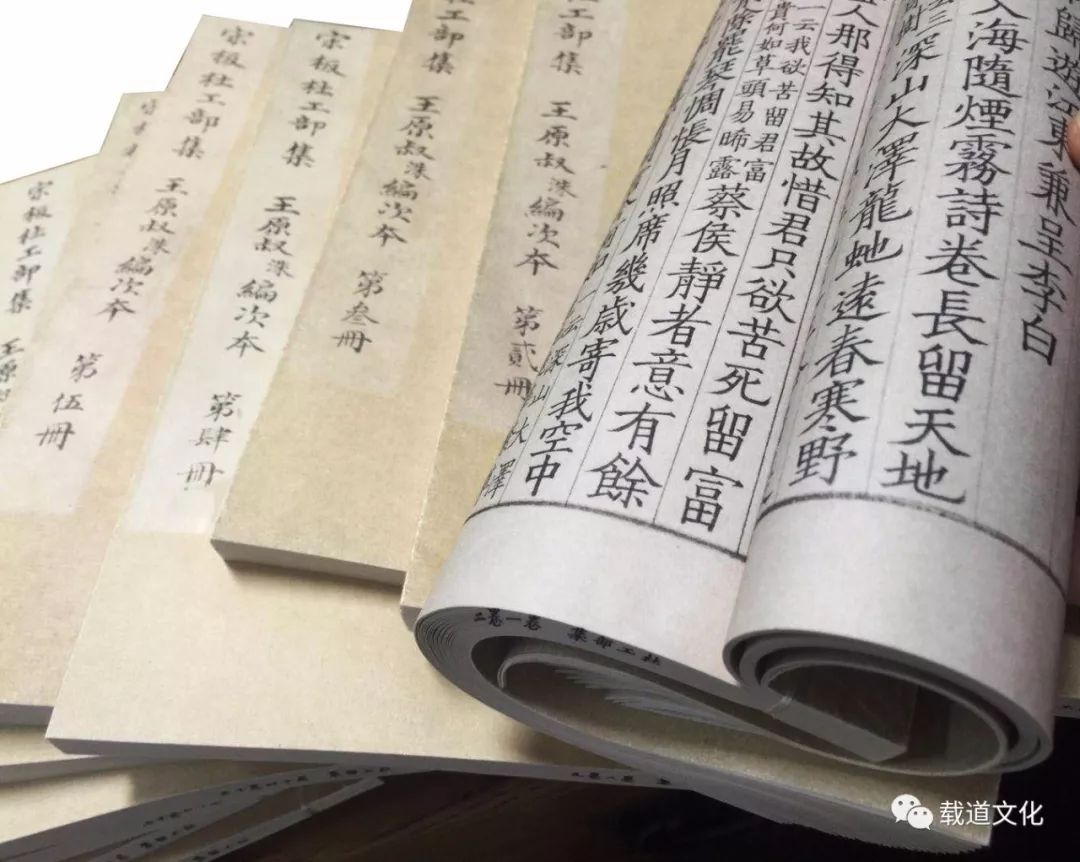 歸遊江東兼呈李白
入海隨煙霧詩卷長留天地
深山大澤龍虵遠春寒野
人那得知其故惜君只欲苦死留富
一云我欲苦留君富
貴何如草頭易晞露
蔡侯靜者意有餘
除罷琴惆悵月照席幾歲寄我空中
云深山大澤
工部集 王原叔洙編次本 第貳冊
杜工部集 王原叔洙編次本 第叁冊
宋板杜工部集 王原叔洙編次本 第肆冊
宋板杜工部集 王原叔洙編次本 第伍冊
宋板杜工部集 王原
杜工部集 卷一卷二
载道文化